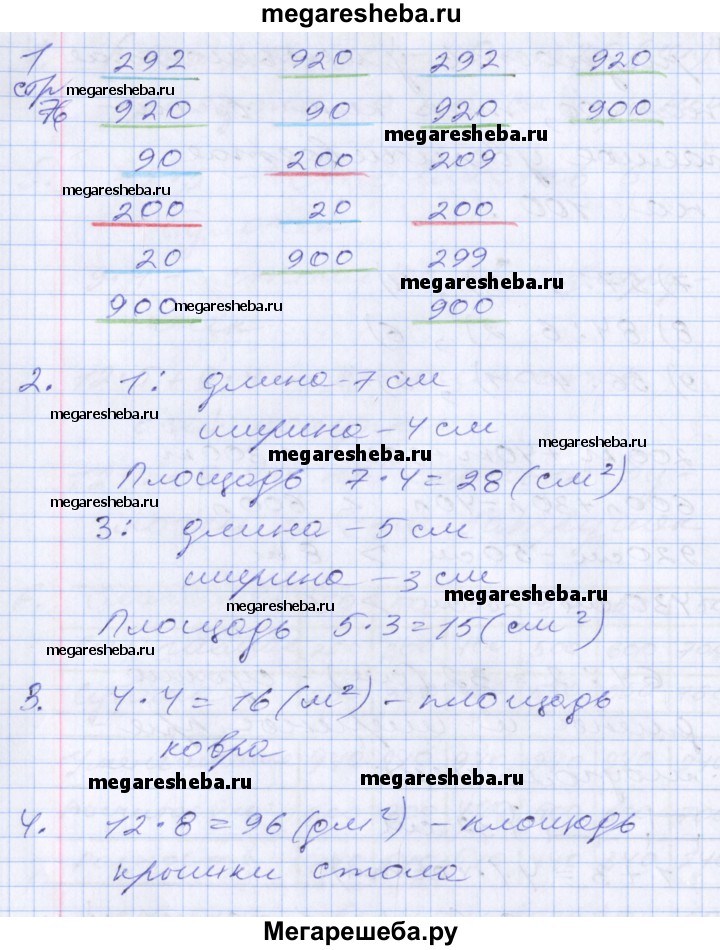 megaresheba.ru
1 292 920 292 920
стр megaresheba.ru
76 920 90 920 900
megaresheba.ru
90 200 209
megaresheba.ru
200 20 200
20 900 299
megaresheba.ru
900 megaresheba.ru 900
2. 1: длина - 7 см
megaresheba.ru
ширина - 4 см
megaresheba.ru
megaresheba.ru
Площадь 7 · 4 = 28 (см²)
megaresheba.ru
3: длина - 5 см
ширина - 3 см
megaresheba.ru
megaresheba.ru
Площадь 5 · 3 = 15 (см²)
megaresheba.ru
3. 4 · 4 = 16 (м²) - площадь
ковра
megaresheba.ru
megaresheba.ru
4. 12 · 8 = 96 (дм²) - площадь
крышки стола.
megaresheba.ru
megaresheba.ru
Мегарешеба.ру